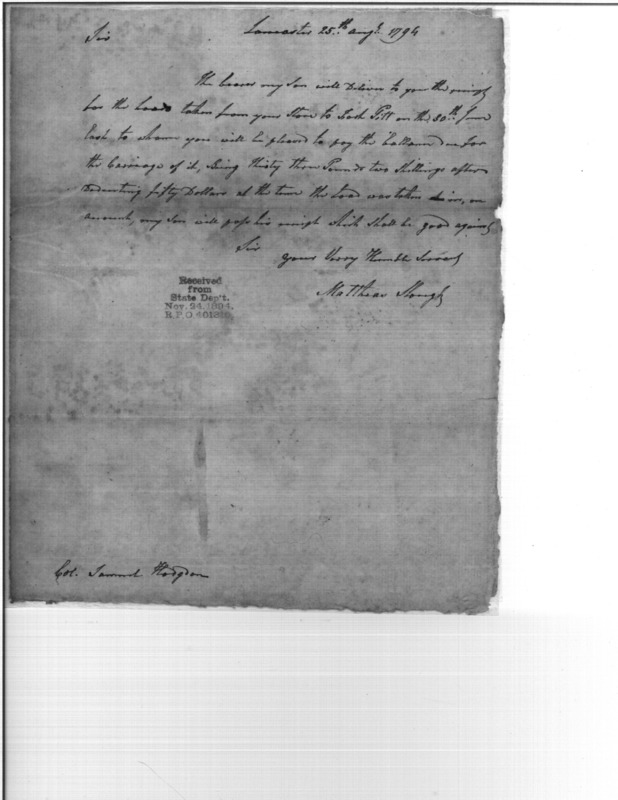 Lancaster 25.th augt. 1794
Sir
the bearer my Son will Deliver to you the
for the Load taken from your Store to Fort Pitt on the 30th June
last to whom you will be pleased to pay the ballance due for
the Carriage of it, Being thirty three Pounds two Shillings after
Deducting fifty Dollars at the time the Load was taken in, on
account, my Son will pass his which shall be good against
Sir
your Verry Humble Servant
Matthias Slough
Received
from
State Dep't.
Nov. 24, 1894.
R.P.O.
Col. Samuel Hodgdon